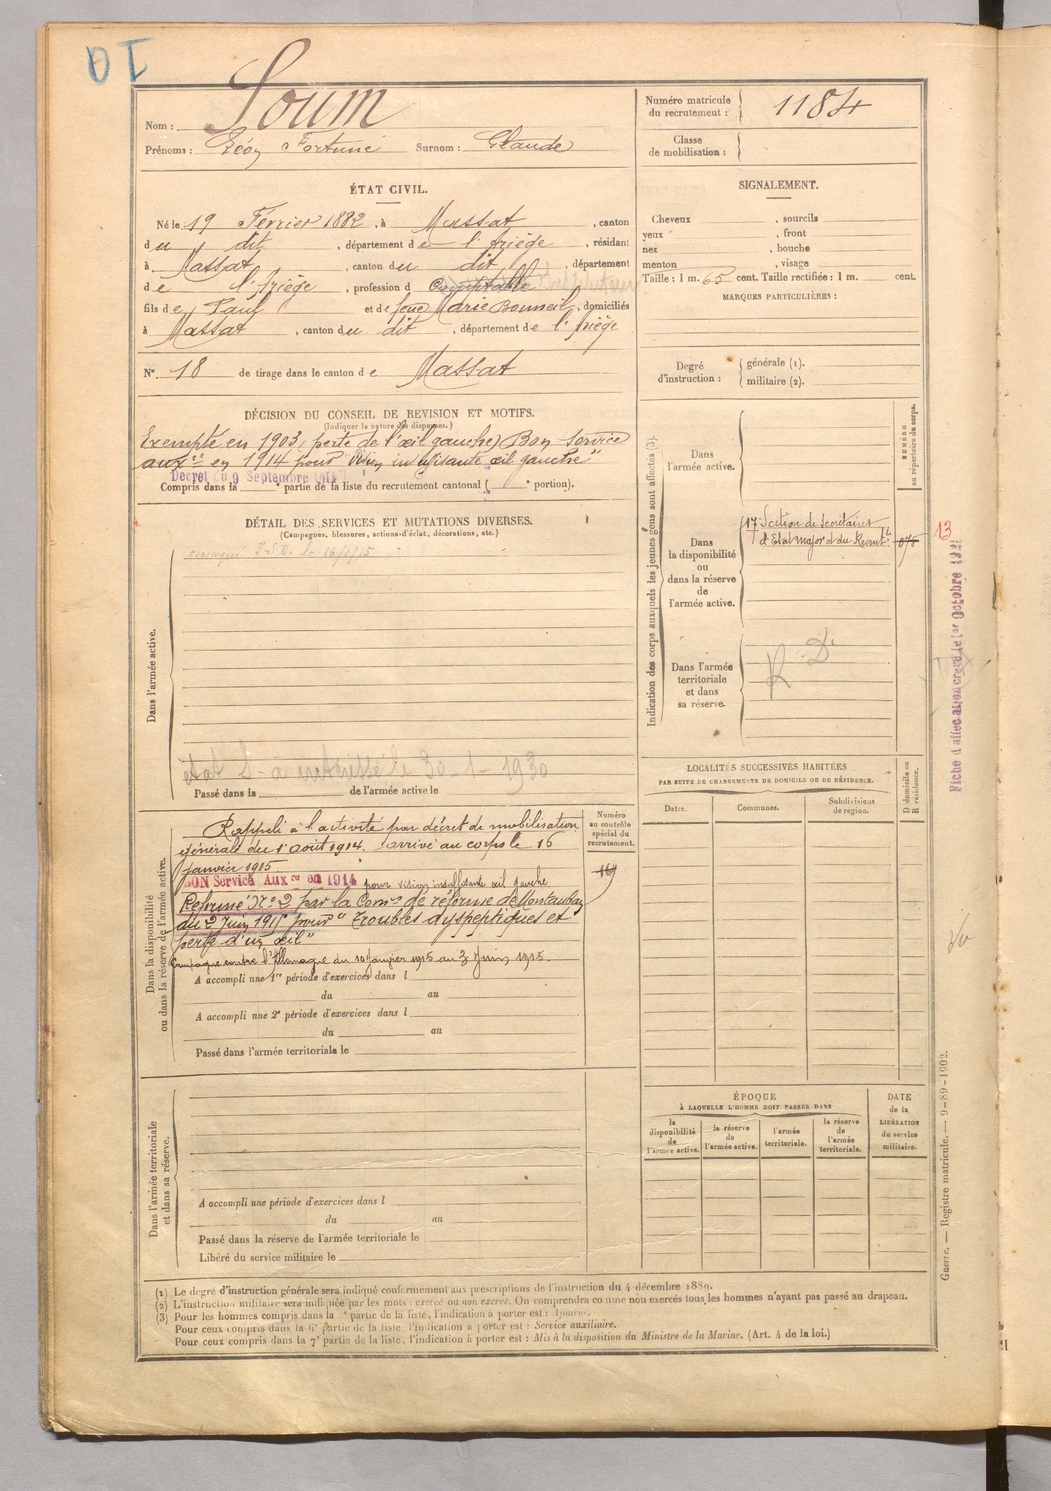 Nom : Soum
Prénoms : Léon Fortuné Surnom : Claude
ÉTAT CIVIL.
Né le 19 Février 1882, à Massat, canton
du dit, département de l'Ariège, résidant
à Massat, canton du dit, département
de l'Ariège, profession d Comptable
fils de Paul et de feue Marie Bonneil, domiciliés
à Massat, canton du dit, département de l'Ariège
N° 18 de tirage dans le canton de Massat
DÉCISION DU CONSEIL DE REVISION ET MOTIFS.
(Indiquer la nature des dispenses.)
Exempté en 1903 (perte de l'œil gauche) Bon service
auxre en 1914 pour vision insuffisante œil gauche"
Décret du 9 Septembre 1914
Compris dans la e partie de la liste du recrutement cantonal ( e portion).
DÉTAIL DES SERVICES ET MUTATIONS DIVERSES.
(Campagnes, blessures, actions d'éclat, décorations, etc.)
Dans l'armée active.
état S- a intéressé le 30-1-1930
Passé dans la de l'armée active le
Dans la disponibilité
ou dans la réserve de l'armée active.
Rappelé à l'activité par décret de mobilisation
générale du 1 août 1914. arrivé au corps le 16
janvier 1915
BON Service Auxre en 1914 pour vision insuffisante œil gauche
Réformé N° 2 par la Comon de réforme de Montauban
du 2 Juin 1915 pour "Troubles dyspeptiques et
perte d'un œil"
Campagne contre l'Allemagne du 16 janvier 1915 au 3 Juin 1915.
A accompli une 1re période d'exercices dans l
du au
A accompli une 2e période d'exercices dans l
du au
Passé dans l'armée territoriale le
Numéro
au contrôle
spécial du
recrutement.
169
Dans l'armée territoriale
et dans sa réserve.
A accompli une période d'exercices dans l
du au
Passé dans la réserve de l'armée territoriale le
Libéré du service militaire le
Numéro matricule
du recrutement : 1184
Classe
de mobilisation :
SIGNALEMENT.
Cheveux , sourcils
yeux , front
nez , bouche
menton , visage
Taille : 1 m. 65 cent. Taille rectifiée : 1 m. cent.
MARQUES PARTICULIÈRES :
Degré
d'instruction :
générale (1).
militaire (2).
Indication des corps auxquels les jeunes gens sont affectés (3).
NUMÉRO
au répertoire du corps.
Dans
l'armée active.
Dans
la disponibilité
ou
dans la réserve
de
l'armée active.
17e Section de Secrétaires
d'Etat Major et du Recrutt
Dans l'armée
territoriale
et dans
sa réserve.
R D
13
Fiche d'affectation créée le 1er Octobre 1921
LOCALITÉS SUCCESSIVES HABITÉES
PAR SUITE DE CHANGEMENTS DE DOMICILE OU DE RÉSIDENCE.
D domicile ou
R résidence.
Dates. Communes. Subdivisions
de région.
ÉPOQUE
À LAQUELLE L'HOMME DOIT PASSER DANS
la
disponibilité
de
l'armée active.
la réserve
de
l'armée active.
l'armée
territoriale.
la réserve
de
l'armée
territoriale.
DATE
de la
LIBÉRATION
du service
militaire.
Guerre. — Registre matricule. — 9-89-1902.
(1) Le degré d'instruction générale sera indiqué conformément aux prescriptions de l'instruction du 4 décembre 1889.
(2) L'instruction militaire sera indiquée par les mots : exercé ou non exercé. On comprendra comme non exercés tous les hommes n'ayant pas passé au drapeau.
(3) Pour les hommes compris dans la partie de la liste, l'indication à porter est : Ajourné.
Pour ceux compris dans la 6e partie de la liste, l'indication à porter est : Service auxiliaire.
Pour ceux compris dans la 7e partie de la liste, l'indication à porter est : Mis à la disposition du Ministre de la Marine. (Art. 4 de la loi.)